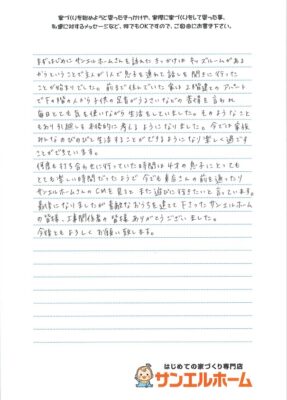 家づくりを始めようと思ったきっかけや、実際に家づくりをして思った事、
私達に対するメッセージなど、何でもOKですので、ご自由にお書き下さい。
まずはじめにサンエルホームさんを訪れたきっかけは キッズルームがある
からということで主人が1人で息子を連れて話しを聞きに行った
ことが始まりでした。前まで住んでいた家は2階建ての アパート
で下の階の人から子供の足音がうるさいなどの苦情を言われ
毎日とても気を使いながら生活をしていました。そのようなこと
もあり引越しを本格的に考えるようになりました。今では家族
みんなのびのびと生活することができるようになり楽しく過ごす
ことができています。
何度も打ち合わせに行っていた時間は4才の息子にとっても
とても楽しい時間だったようで 今でもお店さんの前を通ったり
サンエルホームさんのCMを見ると また遊びに行きたいと言っています。
最後になりましたが素敵なおうちを建てて下さったサンエルホーム
の皆様、工事関係者の皆様 ありがとうございました。
今後ともよろしくお願い致します。
はじめての家づくり専門店
サンエルホーム